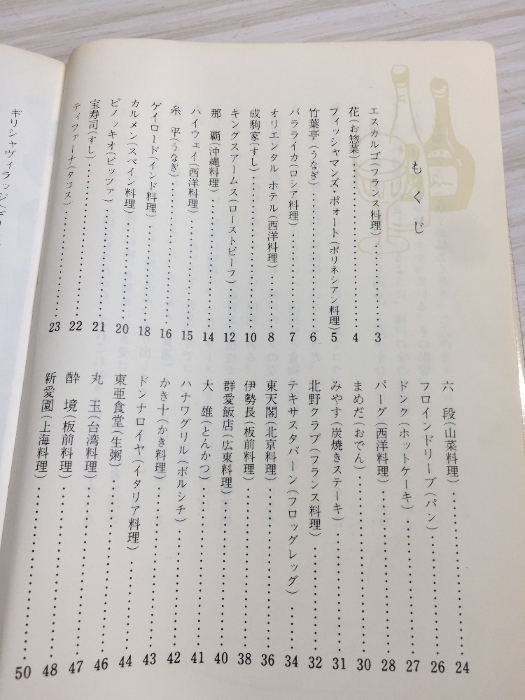 もくじ
エスカルゴ(フランス料理)‥‥‥‥3
花(お惣菜)‥‥‥‥4
フィッシャマンズ・ポォート(ポリネシアン料理)5
竹葉亭(うなぎ)‥‥‥‥6
バラライカ(ロシア料理)‥‥‥‥7
オリエンタル ホテル(西洋料理)‥‥‥‥8
成駒家(すし)‥‥‥‥10
キングスアームス(ローストビーフ)‥‥‥‥12
那 覇(沖縄料理)‥‥‥‥14
ハイウェイ(西洋料理)‥‥‥‥15
糸 平(うなぎ)‥‥‥‥16
ゲイロード(インド料理)‥‥‥‥18
カルメン(スペイン料理)‥‥‥‥20
ピノッキオ(ピッツァ)‥‥‥‥21
宝寿司(すし)‥‥‥‥22
ティファーナ(タコス)‥‥‥‥23
六 段(山菜料理)‥‥‥‥24
フロインドリーブ(パン)‥‥‥‥26
ドンク(ホットケーキ)‥‥‥‥27
バーグ(西洋料理)‥‥‥‥28
まめだ(おでん)‥‥‥‥30
みやす(炭焼きステーキ)‥‥‥‥31
北野クラブ(フランス料理)‥‥‥‥32
テキサスタバーン(フロッグレッグ)‥‥‥‥34
東天閣(北京料理)‥‥‥‥36
伊勢長(板前料理)‥‥‥‥38
群愛飯店(広東料理)‥‥‥‥40
大 雄(とんかつ)‥‥‥‥41
ハナワグリル(ボルシチ)‥‥‥‥42
かき十(かき料理)‥‥‥‥43
ドンナロイヤ(イタリア料理)‥‥‥‥44
東亜食堂(生粥)‥‥‥‥46
丸 玉(台湾料理)‥‥‥‥47
酔 境(板前料理)‥‥‥‥48
新愛園(上海料理)‥‥‥‥50
ギリシャヴィラッジ